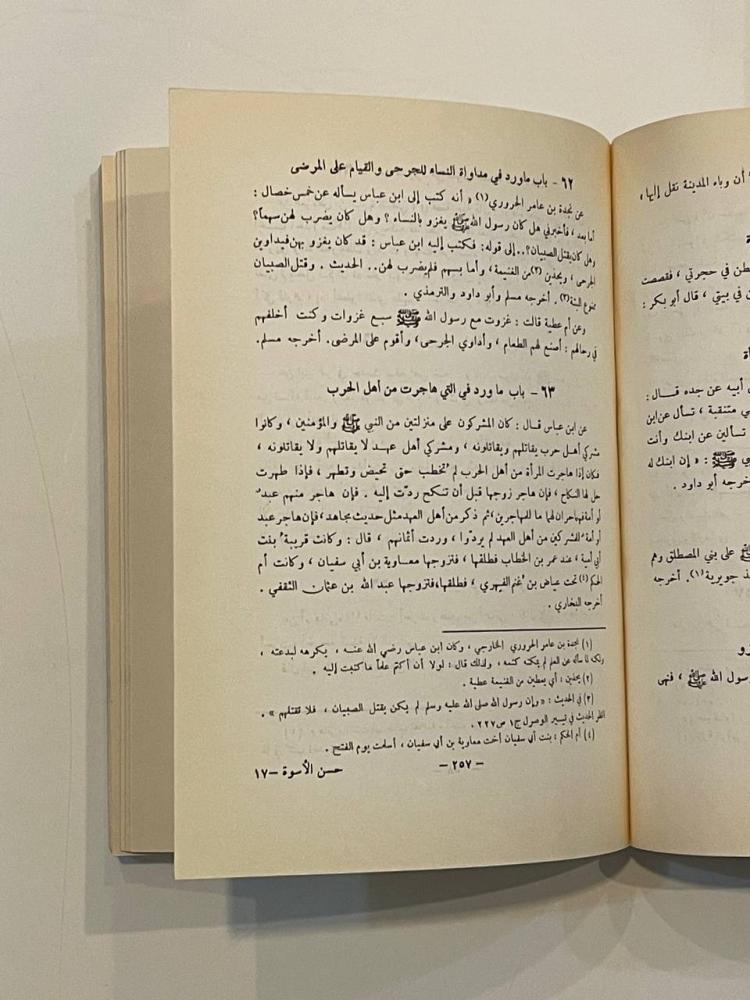 ٦٢ - باب ماورد في مداواة النساء للجرحى والقيام على المرضى
عن نجدة بن عامر الحروري (١) « أنه كتب إلى ابن عباس يسأله عن خمس خصال :
أما بعد ، فأخبرني هل كان رسول الله ﷺ يغزو بالنساء ؟ وهل كان يضرب لهن سهماً؟
وهل كان يقتل الصبيان؟.. إلى قوله : فكتب إليه ابن عباس : قد كان يغزو بهن فيداوين
الجرحى ، ويحذين (٢) من الغنيمة ، وأما بسهم فلم يضرب لهن.. الحديث . وقتل الصبيان
ممنوع البتة (٣) . أخرجه مسلم وأبو داود والترمذي .
وعن أم عطية قالت : غزوت مع رسول الله ﷺ سبع غزوات وكنت أخلفهم
في رحالهم : أصنع لهم الطعام ، وأداوي الجرحى ، وأقوم على المرضى. أخرجه مسلم.
٦٣ - باب ما ورد في التي هاجرت من أهل الحرب
عن ابن عباس قال : كان المشركون على منزلتين من النبي ﷺ والمؤمنين ، وكانوا
مشركي أهل حرب يقاتلهم ويقاتلونه ، ومشركي أهل عهد لا يقاتلهم ولا يقاتلونه ،
فكان إذا هاجرت المرأة من أهل الحرب لم تخطب حتى تحيض وتطهر ، فإذا طهرت
حل لها النكاح ، فإن هاجر زوجها قبل أن تنكح ردّت إليه . فإن هاجر منهم عبدٌ
أو أمة فهما حران لهما ما للمهاجرين ، ثم ذكر من أهل العهد مثل حديث مجاهد ، فإن هاجر عبد
أو أمة للمشركين من أهل العهد لم يردّوا ، وردت أثمانهم ، قال : وكانت قريبةُ بنت
أبي أمية ، عند عمر بن الخطاب فطلقها ، فتزوجها معاوية بن أبي سفيان ، وكانت أم
الحكم (٤) تحت عياض بن غنم الفهري ، فطلقها ، فتزوجها عبد الله بن عثمان الثقفي .
أخرجه البخاري .
(١) نجدة بن عامر الحروري الخارجي ، وكان ابن عباس رضي الله عنه ، يكرهه لبدعته ،
ولكنه لما سأله عن العلم لم يمكنه كتمه ، ولذلك قال : لولا أن أكتم علماً ما كتبت إليه .
(٢) يحذين : أي يعطين من الغنيمة عطية .
(٣) في الحديث : « وإن رسول الله صلى الله عليه وسلم لم يكن يقتل الصبيان ، فلا تقتلهم » .
انظر الحديث في تيسير الوصول ج١ ص ٢٢٧ .
(٤) أم الحكم : بنت أبي سفيان أخت معاوية بن أبي سفيان ، أسلمت يوم الفتح .
- ٢٥٧ -
حسن الأسوة -١٧
أن وباء المدينة نقل إليها ،
في حجرتي ، فقصصت
في بيتي ، قال أبو بكر :
أبيه عن جده قال :
متنقبة ، تسأل عن ابن
تسألين عن ابنك وأنت
ﷺ : « إن ابنك له
أبو داود .
على بني المصطلق وهم
جويرية (١) . أخرجه
رسول الله ﷺ ، فنهى